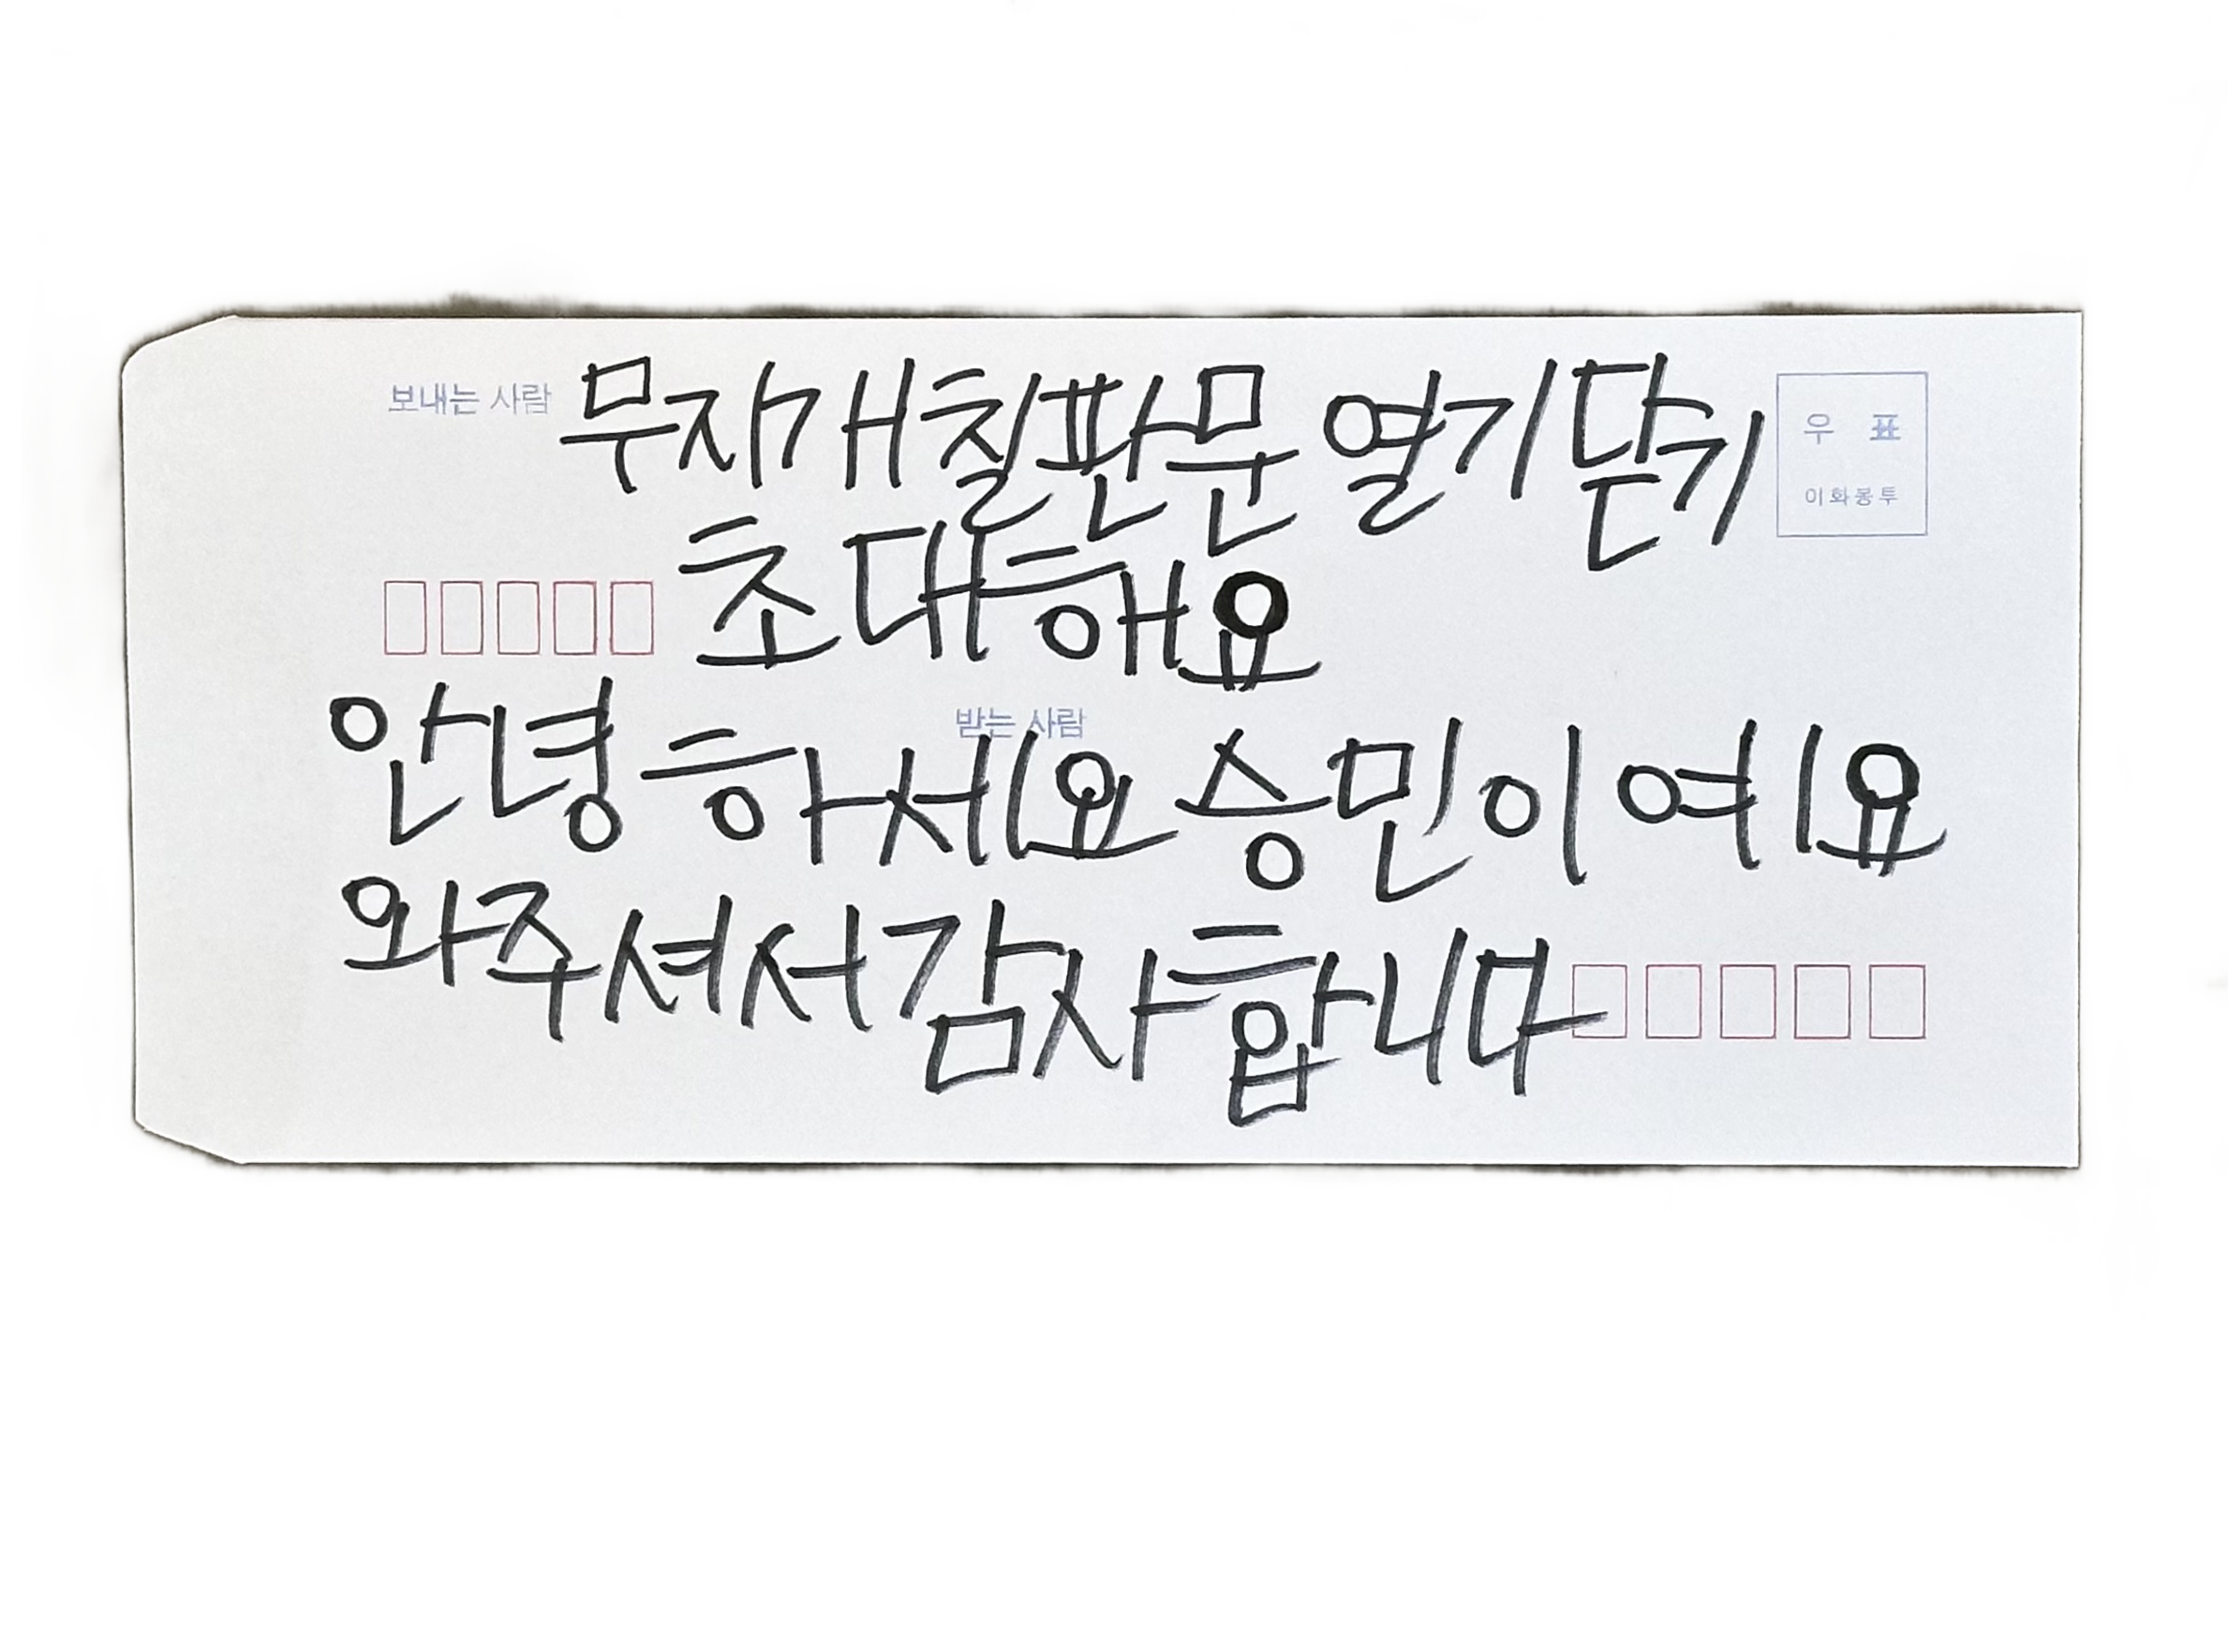 보내는 사람
무지개칠판문 열기닫기
우 표
이화봉투
초대해요
받는 사람
안녕하세요 승민이예요
와주셔서감사합니다